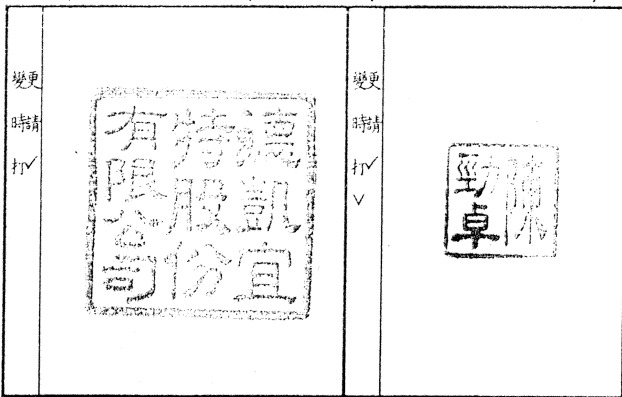 變更時請打✓
德凱宜
特股份
有限公司
變更時請打✓
✓
陳
勁卓